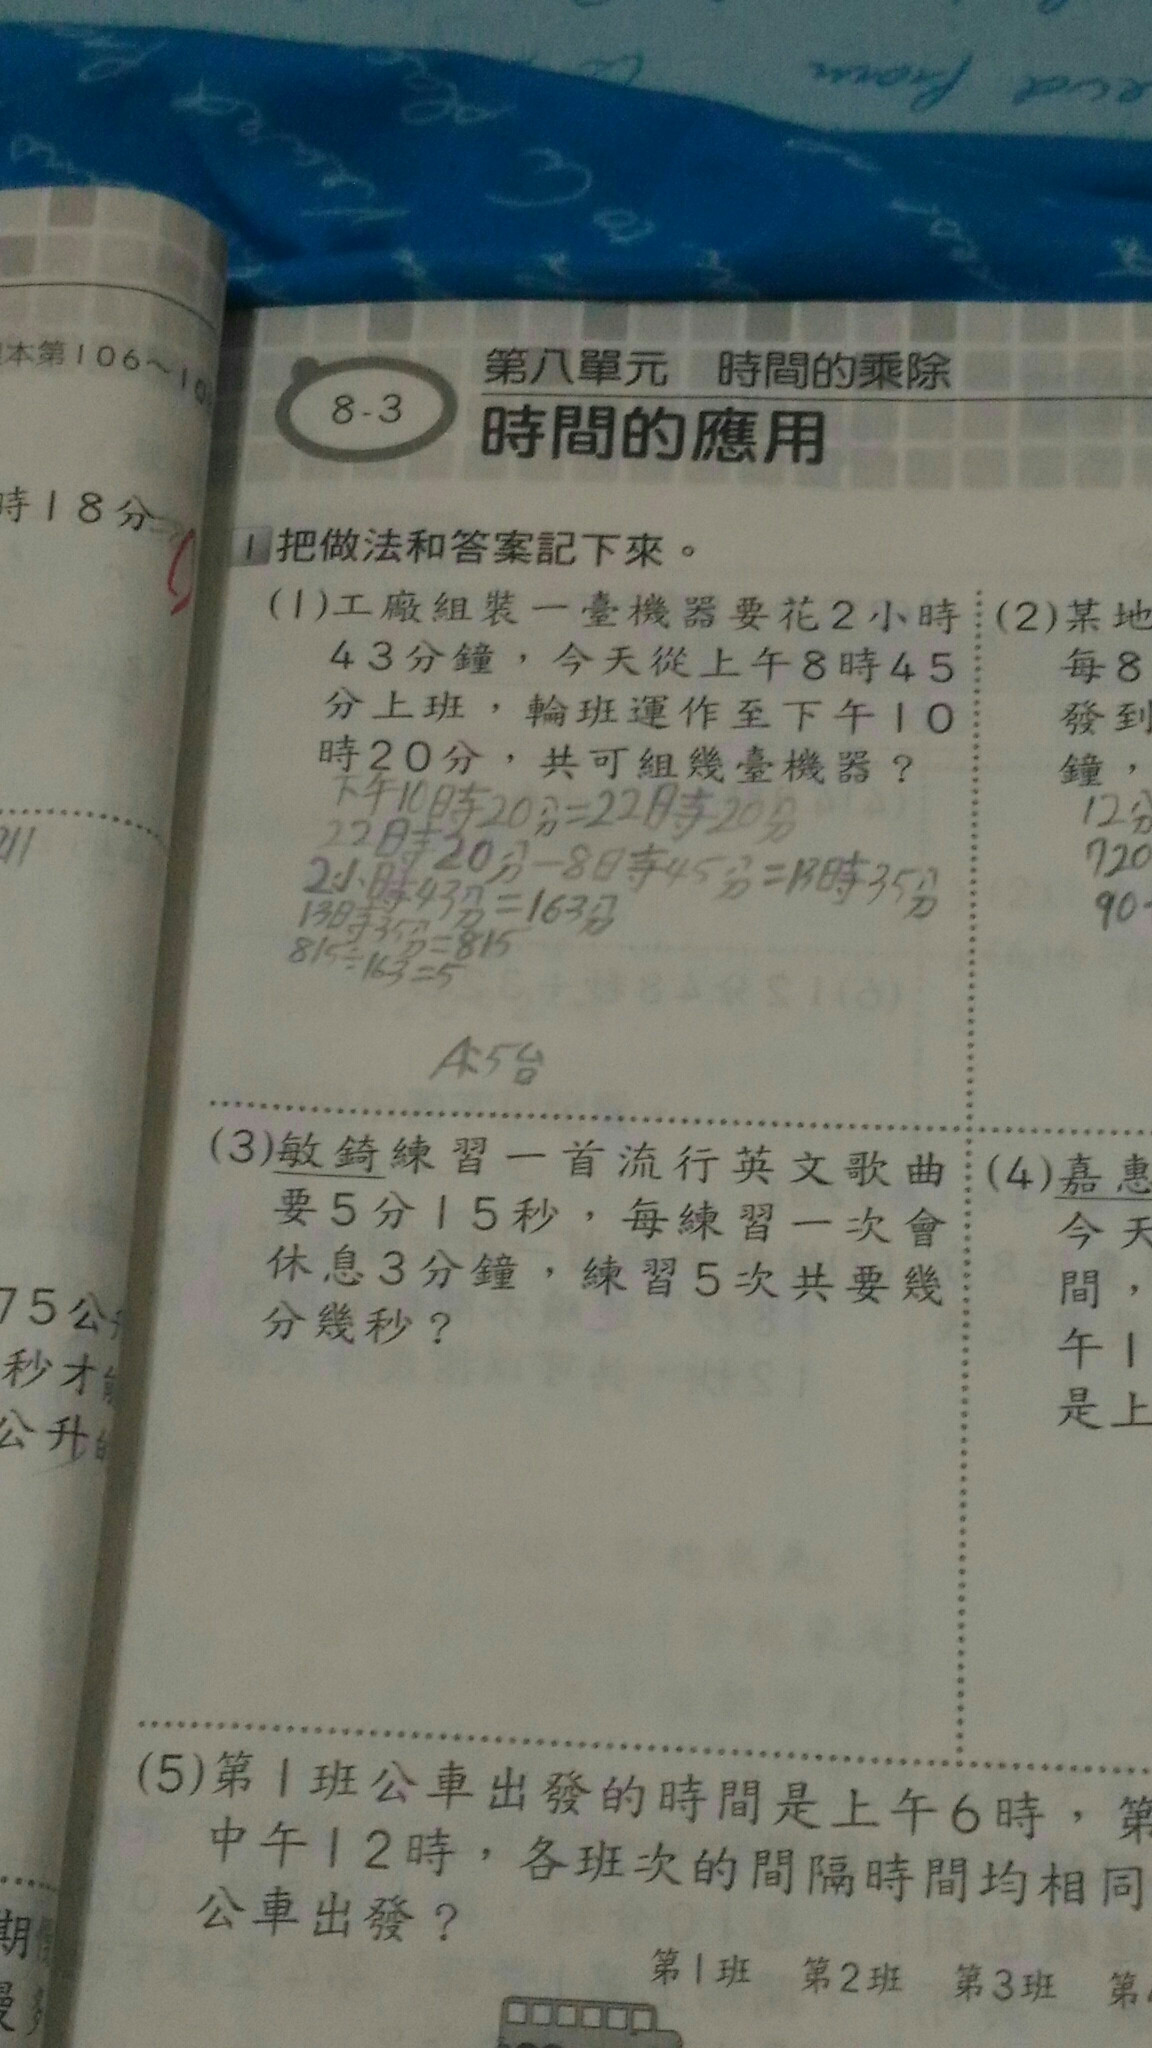 本第106~10
8-3
第八單元 時間的乘除
時間的應用
時18分
1 把做法和答案記下來。
(1)工廠組裝一臺機器要花2小時
43分鐘,今天從上午8時45
分上班,輪班運作至下午10
時20分,共可組幾臺機器?
下午10時20分=22時20分
22時20分-8時45分=13時35分
2小時43分=163分
13時35分=815
815÷163=5
A:5台
(2)某地
每8
發到
鐘,
12分
720
90
(3)敏錡練習一首流行英文歌曲
要5分15秒,每練習一次會
休息3分鐘,練習5次共要幾
分幾秒?
(4)嘉惠
今天
間,
午1
是上
75公升
秒才
公升的
(5)第1班公車出發的時間是上午6時,第
中午12時,各班次的間隔時間均相同
公車出發?
第1班 第2班 第3班 第
期